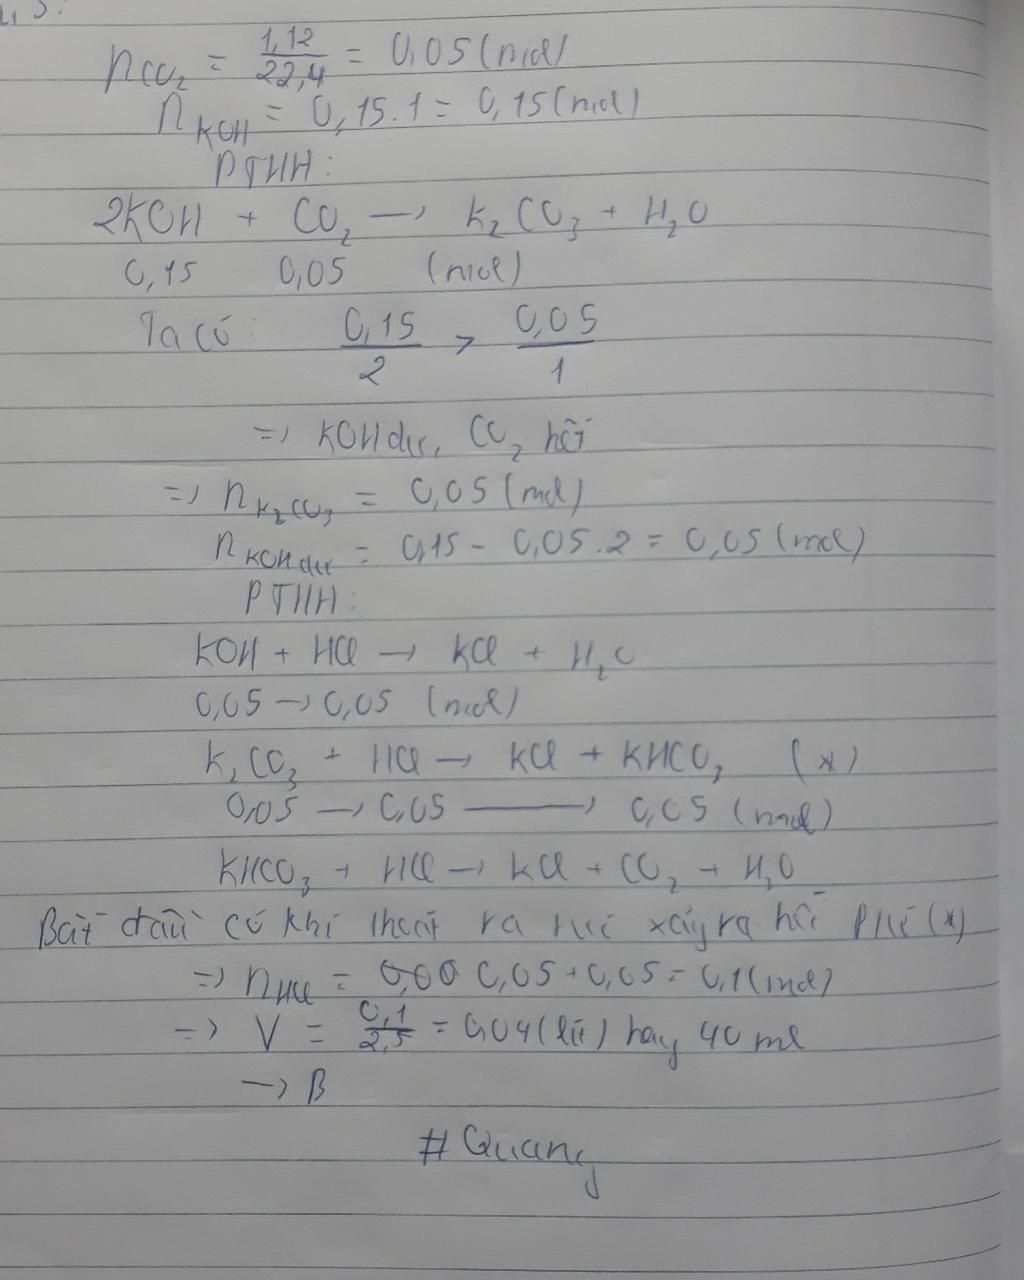 n CO₂ = 1,12/22,4 = 0,05 (mol)
n KOH = 0,15.1 = 0,15 (mol)
PTHH:
2KOH + CO₂ → K₂CO₃ + H₂O
0,15 0,05 (mol)
Ta có: 0,15/2 > 0,05/1
=> KOH dư, CO₂ hết
=> n K₂CO₃ = 0,05 (mol)
n KOH dư = 0,15 - 0,05.2 = 0,05 (mol)
PTHH:
KOH + HCl → KCl + H₂O
0,05 → 0,05 (mol)
K₂CO₃ + HCl → KCl + KHCO₃ (*)
0,05 → 0,05 → 0,05 (mol)
KHCO₃ + HCl → KCl + CO₂ + H₂O
Bắt đầu có khí thoát ra xảy ra hết (*)
=> n HCl = 0,05 + 0,05 = 0,1 (mol)
=> V = 0,1/2,5 = 0,04 (lít) hay 40 ml
→ B
#Quang